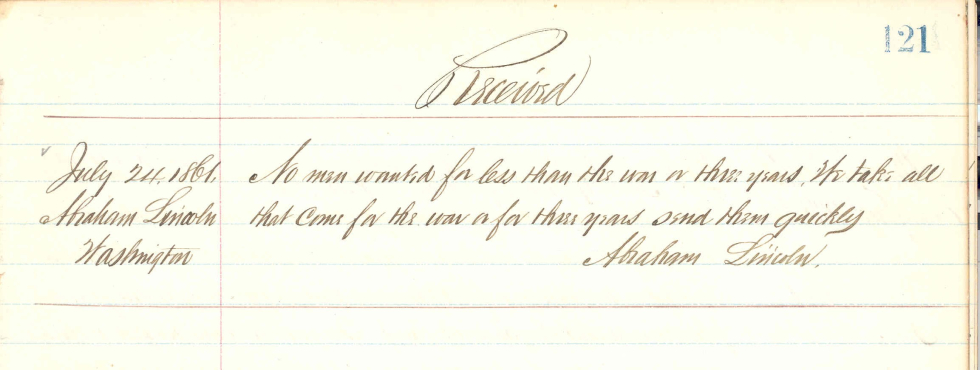 121
Received
July 24. 1861. No men wanted for less than the war or three years. We take all
Abraham Lincoln that come for the war or for three years send them quickly
Washington Abraham Lincoln.